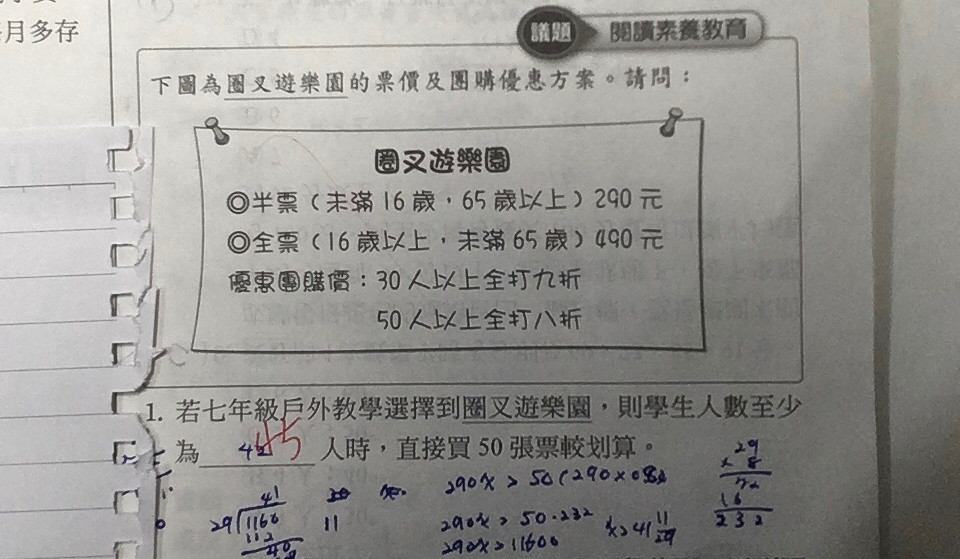 月多存
議題 閱讀素養教育
下圖為圈叉遊樂園的票價及團購優惠方案。請問：
圈叉遊樂園
◎半票（未滿16歲，65歲以上）290元
◎全票（16歲以上，未滿65歲）490元
優惠團購價：30人以上全打九折
50人以上全打八折
1. 若七年級戶外教學選擇到圈叉遊樂園，則學生人數至少
為 42 45 人時，直接買50張票較划算。
290x > 50(290×0.8)
290x > 50·232
290x > 11600
x > 41 11/29
41
29 1160
112
40
11
29
× 8
72
16
232